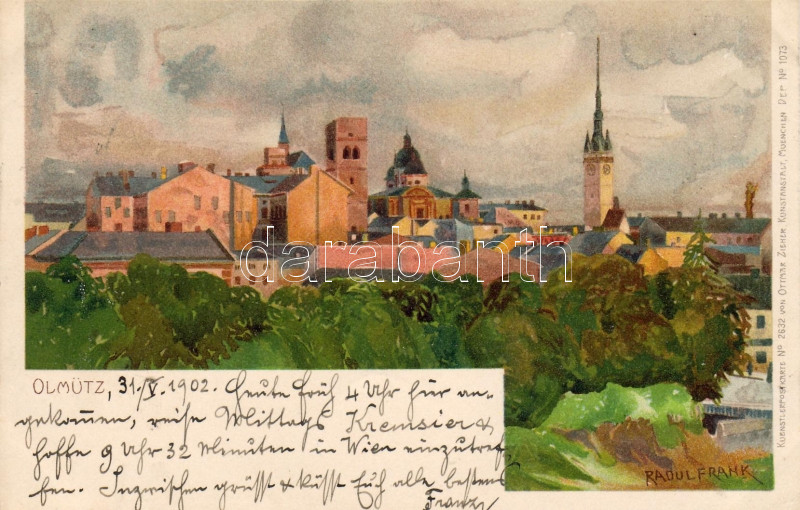 OLMÜTZ, 31./V. 1902. Heute früh 4 Uhr hier an-
gekommen, reise Mittags Kremsier &
hoffe 9 Uhr 32 Minuten in Wien einzutref-
fen. Inzwischen grüsst & küsst Euch alle bestens
Franz
RAOUL FRANK
KUENSTLERPOSTKARTE No. 2632 VON OTTMAR ZIEHER, KUNSTANSTALT, MUENCHEN DEP. No. 1073
darabanth